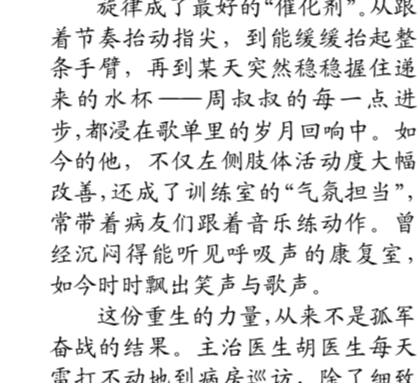 旋律成了最好的“催化剂”。从跟
着节奏抬动指尖，到能缓缓抬起整
条手臂，再到某天突然稳稳握住递
来的水杯——周叔叔的每一点进
步，都浸在歌单里的岁月回响中。如
今的他，不仅左侧肢体活动度大幅
改善，还成了训练室的“气氛担当”，
常带着病友们跟着音乐练动作。曾
经沉闷得能听见呼吸声的康复室，
如今时时飘出笑声与歌声。
这份重生的力量，从来不是孤军
奋战的结果。主治医生胡医生每天
雷打不动地到病房巡访，除了细致